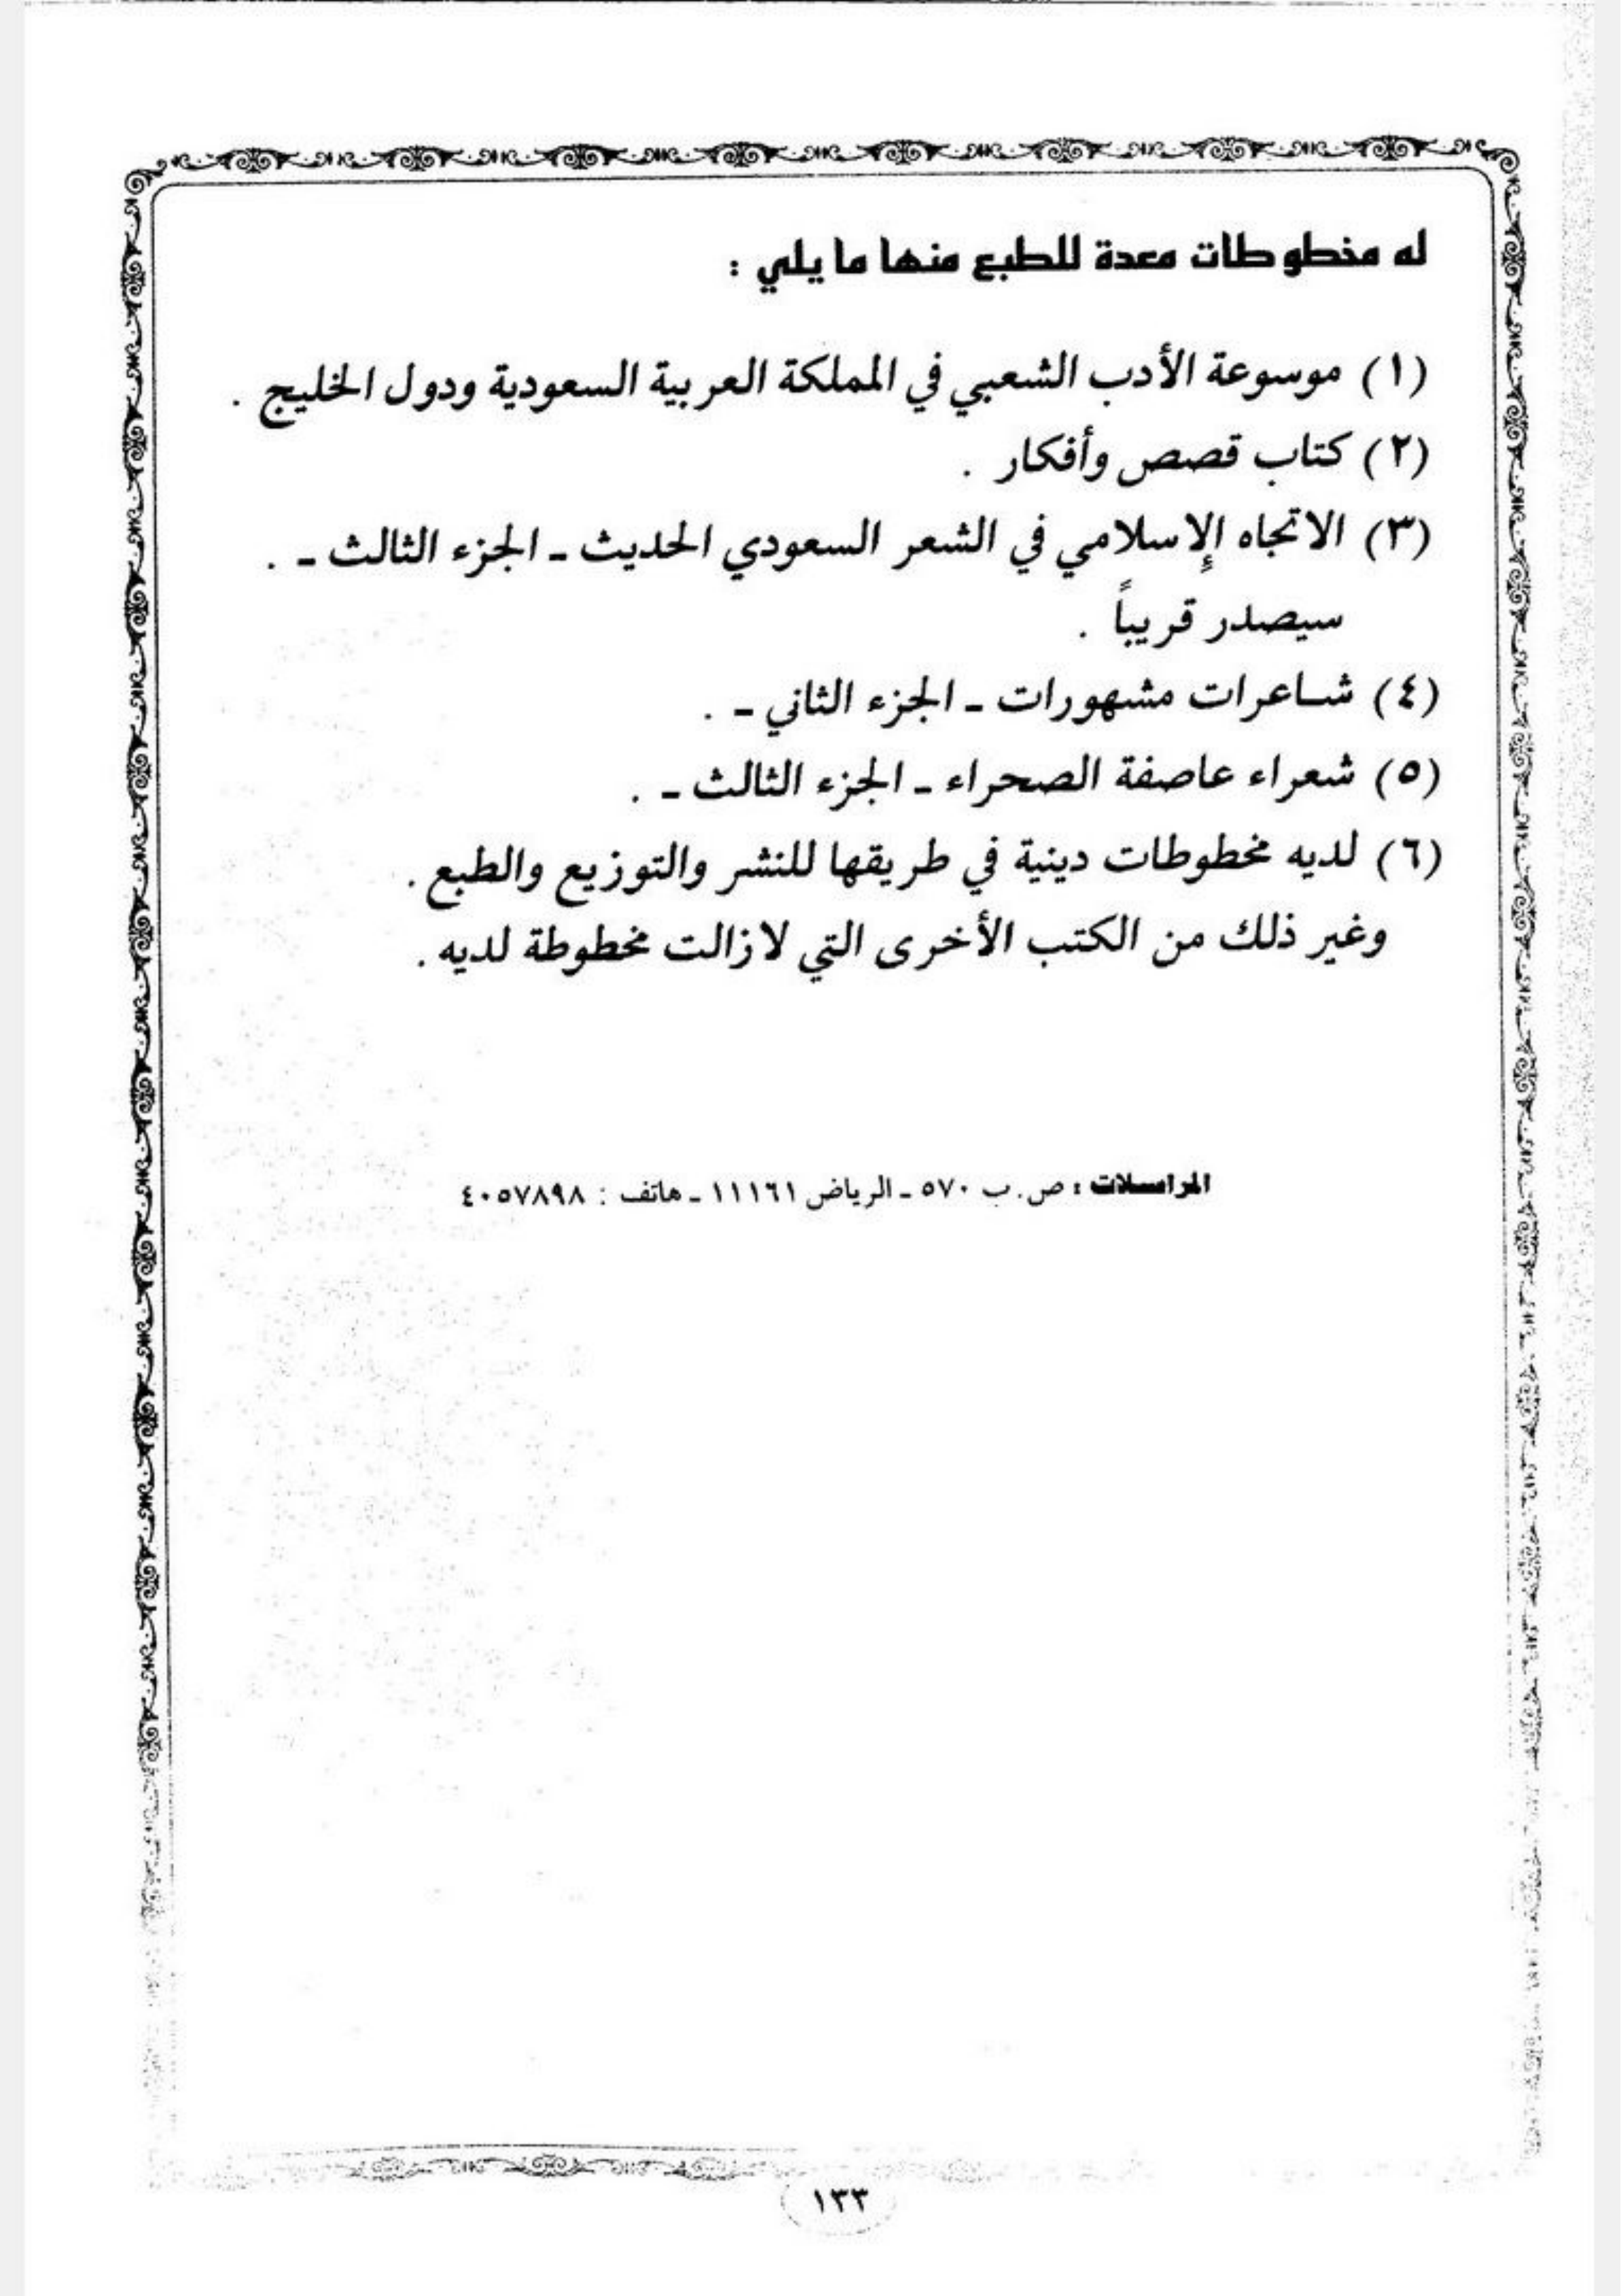 له مخطوطات معدة للطبع منها ما يلي :
(١) موسوعة الأدب الشعبي في المملكة العربية السعودية ودول الخليج .
(٢) كتاب قصص وأفكار .
(٣) الاتجاه الإسلامي في الشعر السعودي الحديث ـ الجزء الثالث ـ .
سيصدر قريباً .
(٤) شاعرات مشهورات ـ الجزء الثاني ـ .
(٥) شعراء عاصفة الصحراء ـ الجزء الثالث ـ .
(٦) لديه مخطوطات دينية في طريقها للنشر والتوزيع والطبع .
وغير ذلك من الكتب الأخرى التي لازالت مخطوطة لديه .
المراسلات : ص . ب ٥٧٠ ـ الرياض ١١١٦١ ـ هاتف : ٤٠٥٧٨٩٨
١٣٣